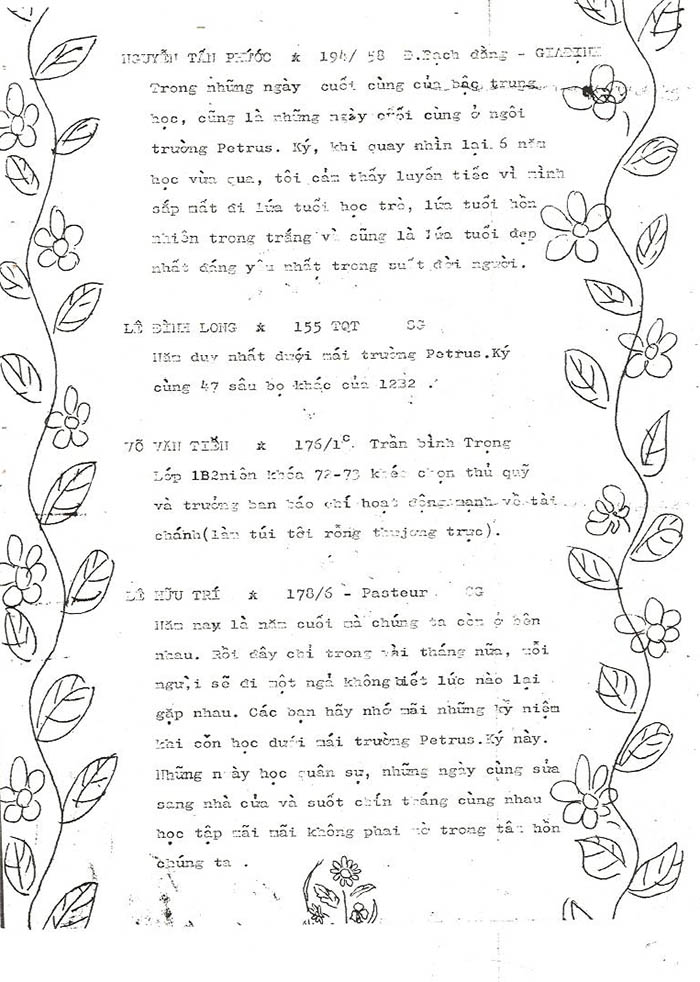 NGUYỄN TẤN PHƯỚC * 194/ 58 Đ.Bạch đằng - GIAĐỊNH
Trong những ngày cuối cùng của bậc trung
học, cũng là những ngày cuối cùng ở ngôi
trường Petrus. Ký, khi quay nhìn lại 6 năm
học vừa qua, tôi cảm thấy luyến tiếc vì mình
sắp mất đi lứa tuổi học trò, lứa tuổi hồn
nhiên trong trắng và cũng là lứa tuổi đẹp
nhất đáng yêu nhất trong suốt đời người.
LÊ ĐÌNH LONG * 155 TQT SG
Năm duy nhất dưới mái trường Petrus.Ký
cùng 47 sâu bọ khác của 12B2 .
VÕ VĂN TIỄN * 176/1C. Trần bình Trọng
Lớp 1B2niên khóa 72-73 khéo chọn thủ quỹ
và trưởng ban báo chí hoạt động mạnh về tài
chánh(làm túi tôi rỗng thường trực).
LÊ HỮU TRÍ * 178/6 - Pasteur SG
Năm nay là năm cuối mà chúng ta còn ở bên
nhau. Rồi đây chỉ trong vài tháng nữa, mỗi
người sẽ đi một ngả không biết lúc nào lại
gặp nhau. Các bạn hãy nhớ mãi những kỷ niệm
khi còn học dưới mái trường Petrus.Ký này.
Những ngày học quân sự, những ngày cùng sửa
sang nhà cửa và suốt chín tháng cùng nhau
học tập mãi mãi không phai mờ trong tâm hồn
chúng ta .